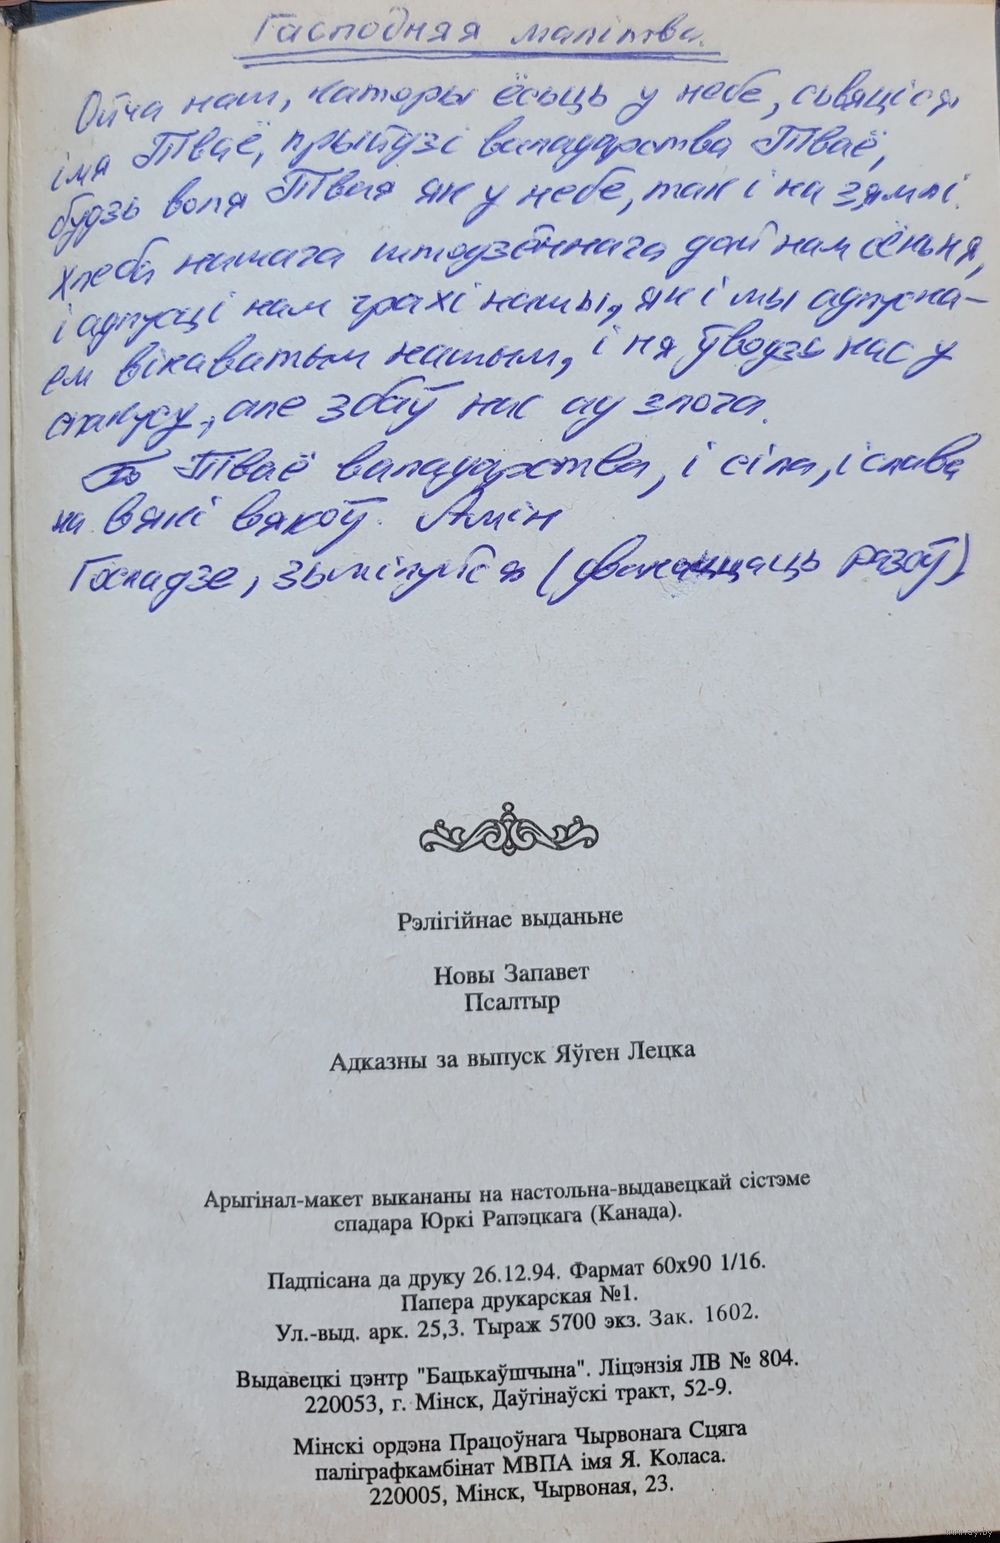 Гасподняя малітва.
Ойча наш, каторы ёсьць у небе, сьвяціся
імя Тваё, прыйдзі валадарства Тваё,
будзь воля Твая як у небе, так і на зямлі.
Хлеба нашага штодзённага дай нам сёньня,
і адпусьці нам грахі нашы, як і мы адпуска-
ем вінаватым нашым, і ня ўводзь нас у
спакусу, але збаў нас ад злога.
Бо Тваё валадарства, і сіла, і слава
на вякі вякоў. Амін
Госпадзе, зьмілуйся (дванаццаць разоў)
Рэлігійнае выданьне
Новы Запавет
Псалтыр
Адказны за выпуск Яўген Лецка
Арыгінал-макет выкананы на настольна-выдавецкай сістэме
спадара Юркі Рапэцкага (Канада).
Падпісана да друку 26.12.94. Фармат 60х90 1/16.
Папера друкарская №1.
Ул.-выд. арк. 25,3. Тыраж 5700 экз. Зак. 1602.
Выдавецкі цэнтр "Бацькаўшчына". Ліцэнзія ЛВ № 804.
220053, г. Мінск, Даўгінаўскі тракт, 52-9.
Мінскі ордэна Працоўнага Чырвонага Сцяга
паліграфкамбінат МВПА імя Я. Коласа.
220005, Мінск, Чырвоная, 23.